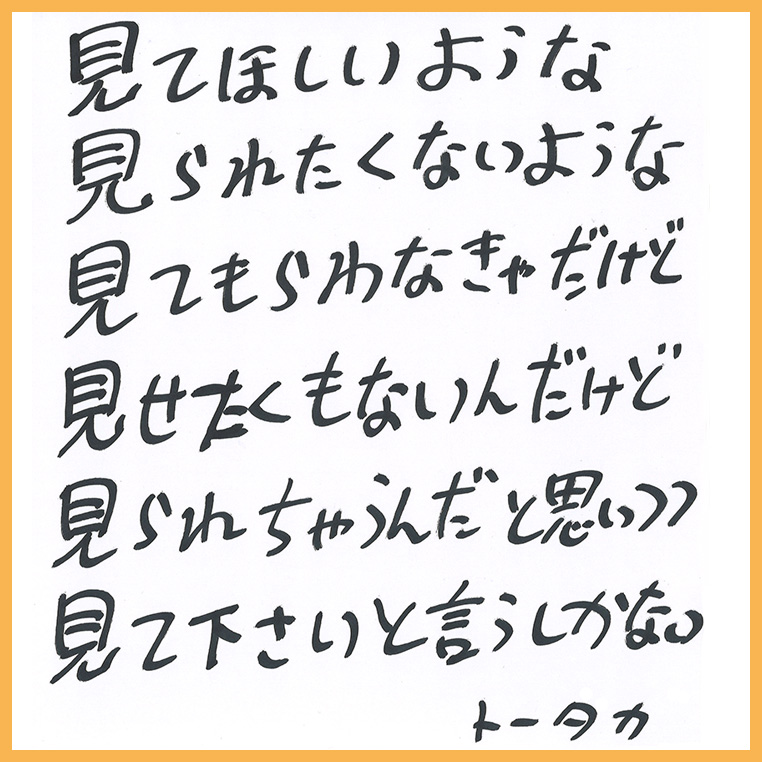 見てほしいような
見られたくないような
見てもらわなきゃだけど
見せたくもないんだけど
見られちゃうんだと思いつつ
見て下さいと言うしかない。
トータカ